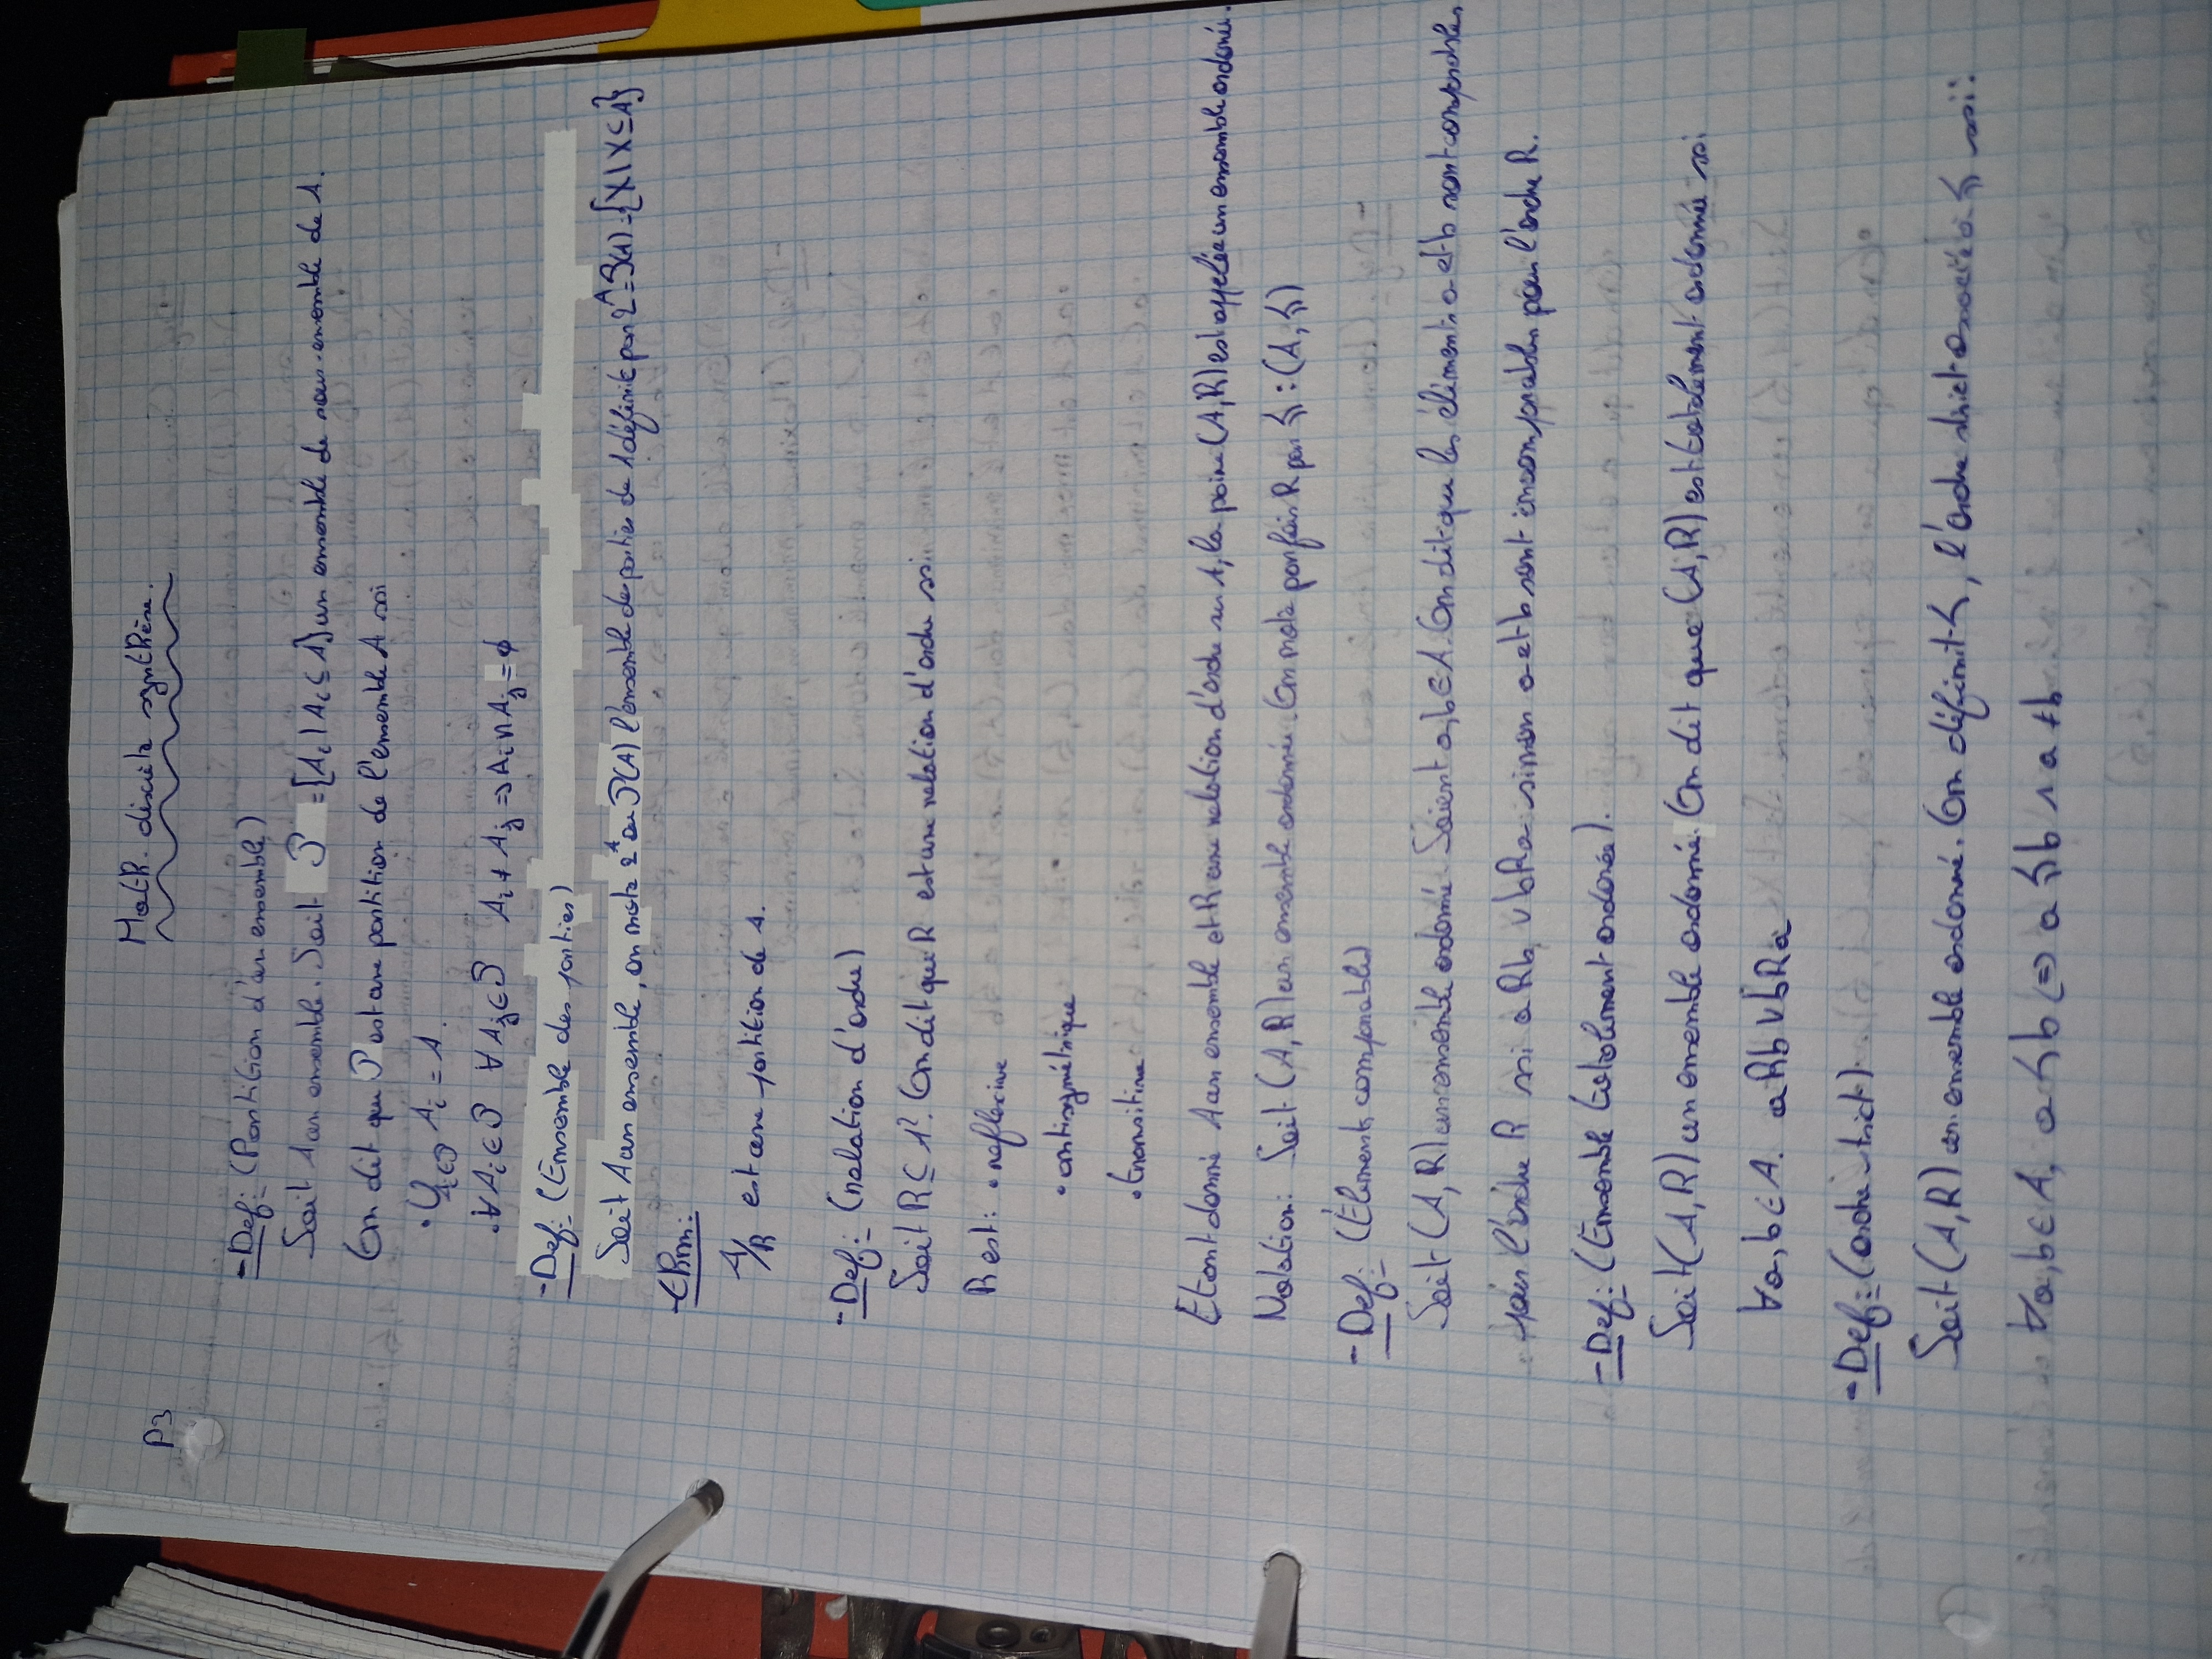 P3
Math. discrète synthèse.
- Def: (Partition d'un ensemble)
Soit A un ensemble. Soit 𝒫 = {Aᵢ | Aᵢ ⊆ A} un ensemble de sous-ensemble de A.
On dit que 𝒫 est une partition de l'ensemble A ssi
• ∪_{Aᵢ∈𝒫} Aᵢ = A.
• ∀ Aᵢ ∈ 𝒫 ∀ Aⱼ ∈ 𝒫 Aᵢ ≠ Aⱼ => Aᵢ ∩ Aⱼ = ϕ
- Def: (Ensemble des parties)
Soit A un ensemble, on note 2ᴬ ou 𝒫(A) l'ensemble des parties de A définit par 2ᴬ = 𝒫(A) = {X | X ⊆ A}
- thm:
A/R est une partition de A.
- Def: (relation d'ordre)
Soit R ⊆ A². On dit que R est une relation d'ordre ssi
R est: • reflexive
• antisymétrique
• transitive
Etant donné A un ensemble et R une relation d'ordre sur A, la paire (A,R) est appelée un ensemble ordonnée.
Notation: Soit (A,R) un ensemble ordonnée. On note parfois R par ⩽ : (A, ⩽)
- Def: (Éléments comparables)
Soit (A,R) un ensemble ordonné. Soient a,b ∈ A. On dit que les éléments a et b sont comparables
pour l'ordre R ssi a R b ∨ b R a sinon a et b sont incomparables pour l'ordre R.
- Def: (Ensemble totalement ordonée).
Soit (A,R) un ensemble ordonné. On dit que (A,R) est totalement ordonnée ssi
∀a,b ∈ A. a R b ∨ b R a
- Def: (ordre strict).
Soit (A,R) un ensemble ordonné. On définit <, l'ordre strict associé à ⩽ ssi:
∀a,b ∈ A, a < b <=> a ⩽ b ∧ a ≠ b